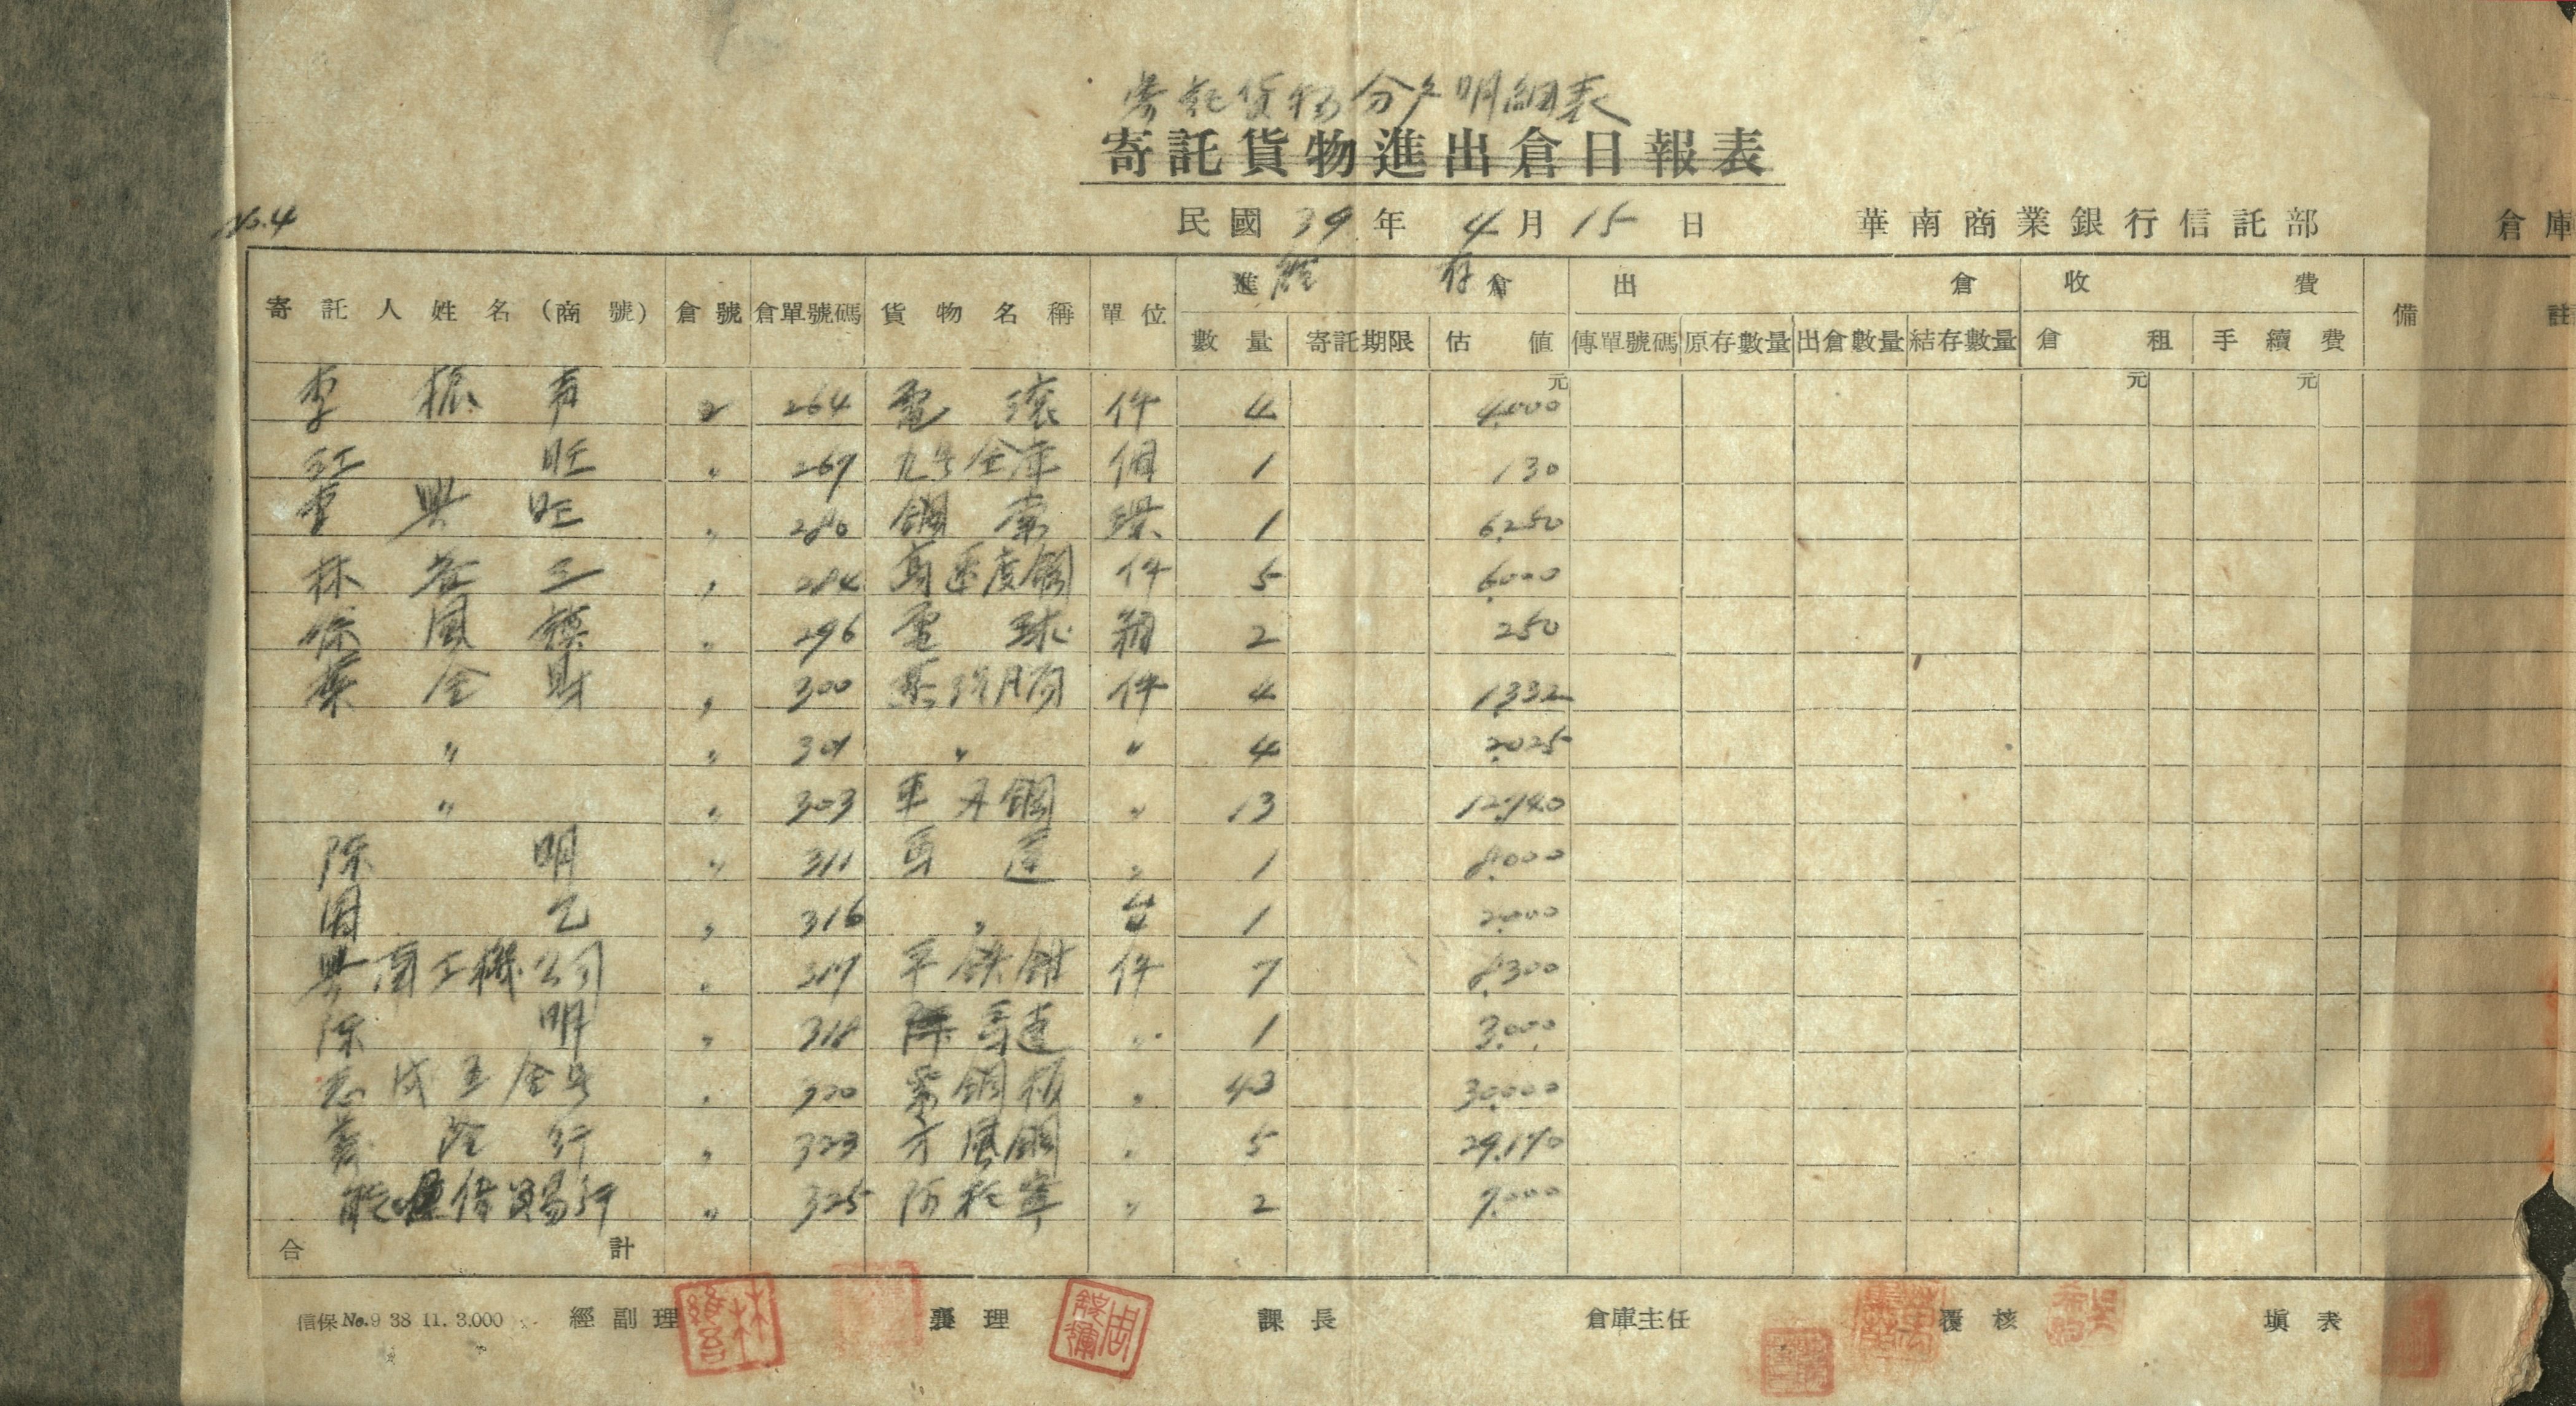 寄託貨物分戶明細表
寄託貨物進出倉日報表
No.4 民國 39 年 4 月 15 日 華南商業銀行信託部 倉庫
寄託人姓名(商號) 倉號 倉單號碼 貨物名稱 單位 進 倉 出 倉 收 費 備 註
結 存
數量 寄託期限 估值 傳單號碼 原存數量 出倉數量 結存數量 倉租 手續費
元 元 元
李振 2 264 電 件 4 4.000
江旺 〃 267 九号金庫 個 1 130
李興旺 〃 280 鋼 1 6.250
林 〃 284 高速度鋼 件 5 6.000
徐鳳 〃 296 電球 箱 2 250
葉金財 〃 300 件 4 1.332
〃 〃 301 〃 〃 4 2.025
〃 〃 303 車刀鋼 〃 13 12.740
陳明 〃 311 馬達 〃 1 8.000
周乙 〃 316 〃 台 1 2.000
興南工機公司 〃 317 平鉄鉗 件 7 8.300
陳明 〃 318 馬達 〃 1 3.000
成五金号 〃 320 紫銅板 〃 43 30.000
行 〃 323 鋼 〃 5 29.170
貿易行 〃 325 〃 2 7.000
合計
信保No.9 38 11. 3.000 經副理 襄理 課長 倉庫主任 覆核 塡表
林維吾